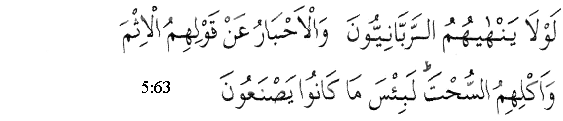 لَوْلَا يَنْهٰىهُمُ الرَّبَّانِيُّونَ وَالْاَحْبَارُ عَنْ قَوْلِهِمُ الْاِثْمَ
وَاَكْلِهِمُ السُّحْتَ ؕ لَبِئْسَ مَا كَانُوا يَصْنَعُونَ 5:63